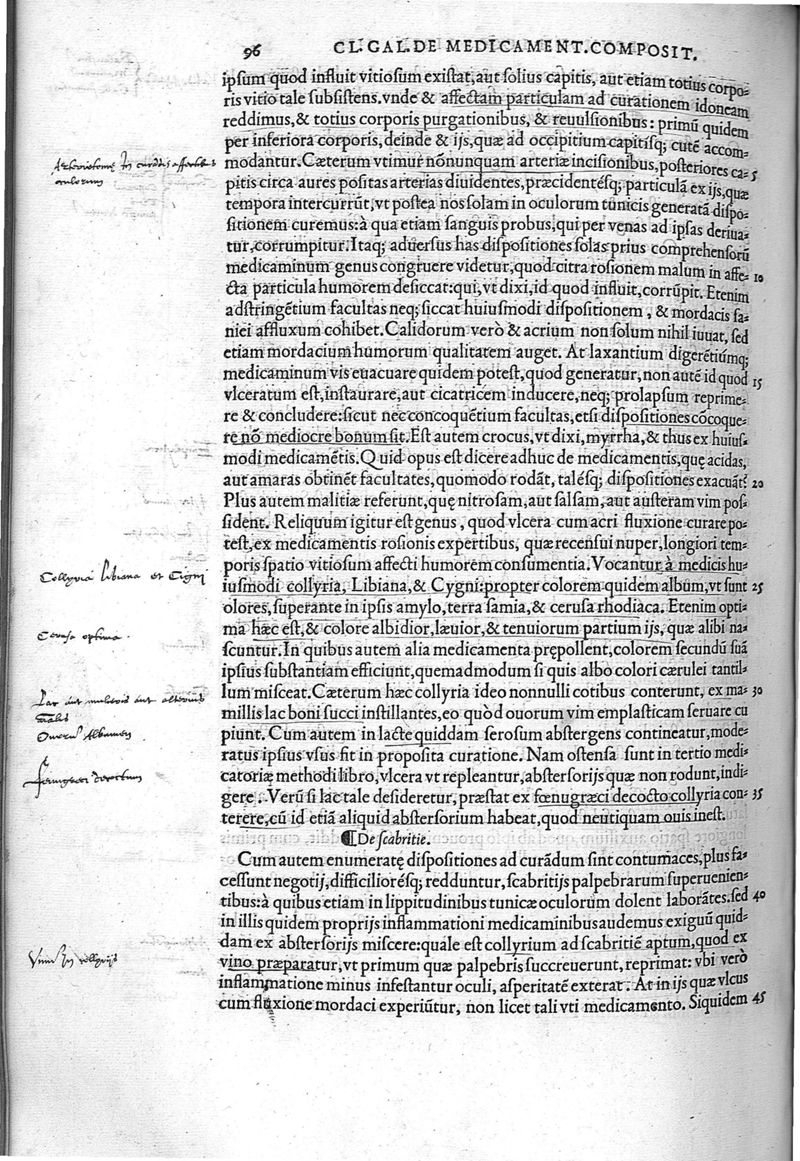 96 CL. GAL. DE MEDICAMENT. COMPOSIT.
ipsum quod influit vitiosum existat, aut solius capitis, aut etiam totius corpo=
ris vitio tale subsistens. vnde & affectam particulam ad curationem idoneam
reddimus, & totius corporis purgationibus, & reuulsionibus: primū quidem
per inferiora corporis, deinde & ijs, quæ ad occipitium capitisq; cutē accom=
modantur. Cæterum vtimur nōnunquam arteriæ incisionibus, posteriores ca= 5
pitis circa aures positas arterias diuidentes, præcidentésq; particulā ex ijs, quæ
tempora intercurrūt, vt postea nos solam in oculorum tunicis generatā dispo=
sitionem curemus: à qua etiam sanguis probus, qui per venas ad ipsas deriua=
tur, corrumpitur. Itaq; aduersus has dispositiones solas prius comprehensorū
medicaminum genus congruere videtur, quod citra rosionem malum in affe= 10
cta particula humorem desiccat: qui, vt dixi, id quod influit, corrūpit. Etenim
adstringētium facultas neq; siccat huiusmodi dispositionem, & mordacis sa=
niei affluxum cohibet. Calidorum verò & acrium non solum nihil iuuat, sed
etiam mordacium humorum qualitatem auget. At laxantium digerētiūmq;
medicaminum vis euacuare quidem potest, quod generatur, non autē id quod 15
vlceratum est, instaurare, aut cicatricem inducere, neq; prolapsum reprime=
re & concludere: sicut nec concoquētium facultas, etsi dispositiones cōcoque=
re nō mediocre bonum sit. Est autem crocus, vt dixi, myrrha, & thus ex huius=
modi medicamētis. Quid opus est dicere adhuc de medicamentis, quę acidas,
aut amaras obtinēt facultates, quomodo rodāt, talésq; dispositiones exacuāt? 20
Plus autem malitiæ referunt, quę nitrosam, aut salsam, aut austeram vim pos=
sident. Reliquum igitur est genus, quod vlcera cum acri fluxione curare po=
test, ex medicamentis rosionis expertibus, quæ recensui nuper, longiori tem=
poris spatio vitiosum affecti humorem consumentia. Vocantur à medicis hu=
iusmodi collyria, Libiana, & Cygni: propter colorem quidem album, vt sunt 25
olores, superante in ipsis amylo, terra samia, & cerusa rhodiaca. Etenim opti=
ma hæc est, & colore albidior, læuior, & tenuiorum partium ijs, quæ alibi na=
scuntur. In quibus autem alia medicamenta prępollent, colorem secundū suā
ipsius substantiam efficiunt, quemadmodum si quis albo colori cærulei tantil=
lum misceat. Cæterum hæc collyria ideo nonnulli cotibus conterunt, ex ma= 30
millis lac boni succi instillantes, eo quòd ouorum vim emplasticam seruare cu
piunt. Cum autem in lacte quiddam serosum abstergens contineatur, mode=
ratus ipsius vsus fit in proposita curatione. Nam ostensa sunt in tertio medi=
catoriæ methodi libro, vlcera vt repleantur, abstersorijs quæ non rodunt, indi=
gere. Verū si lac tale desideretur, præstat ex fœnugræci decocto collyria con= 35
terere, cū id etiā aliquid abstersorium habeat, quod neutiquam ouis inest.
¶ De scabritie.
Cum autem enumeratę dispositiones ad curādum sint contumaces, plus fa=
cessunt negotij, difficiliorésq; redduntur, scabritijs palpebrarum superuenien=
tibus: à quibus etiam in lippitudinibus tunicæ oculorum dolent laborātes. sed 40
in illis quidem proprijs inflammationi medicaminibus audemus exiguū quid=
dam ex abstersorijs miscere: quale est collyrium ad scabritiē aptum, quod ex
vino præparatur, vt primum quæ palpebris succreuerunt, reprimat: vbi verò
inflammatione minus infestantur oculi, asperitatē exterat. At in ijs quæ vlcus
cum fluxione mordaci experiūtur, non licet tali vti medicamento. Siquidem 45
oculorum
Collyria Libiana et Cigni
Cerusa optima.
Lac
Ouorū Albumen